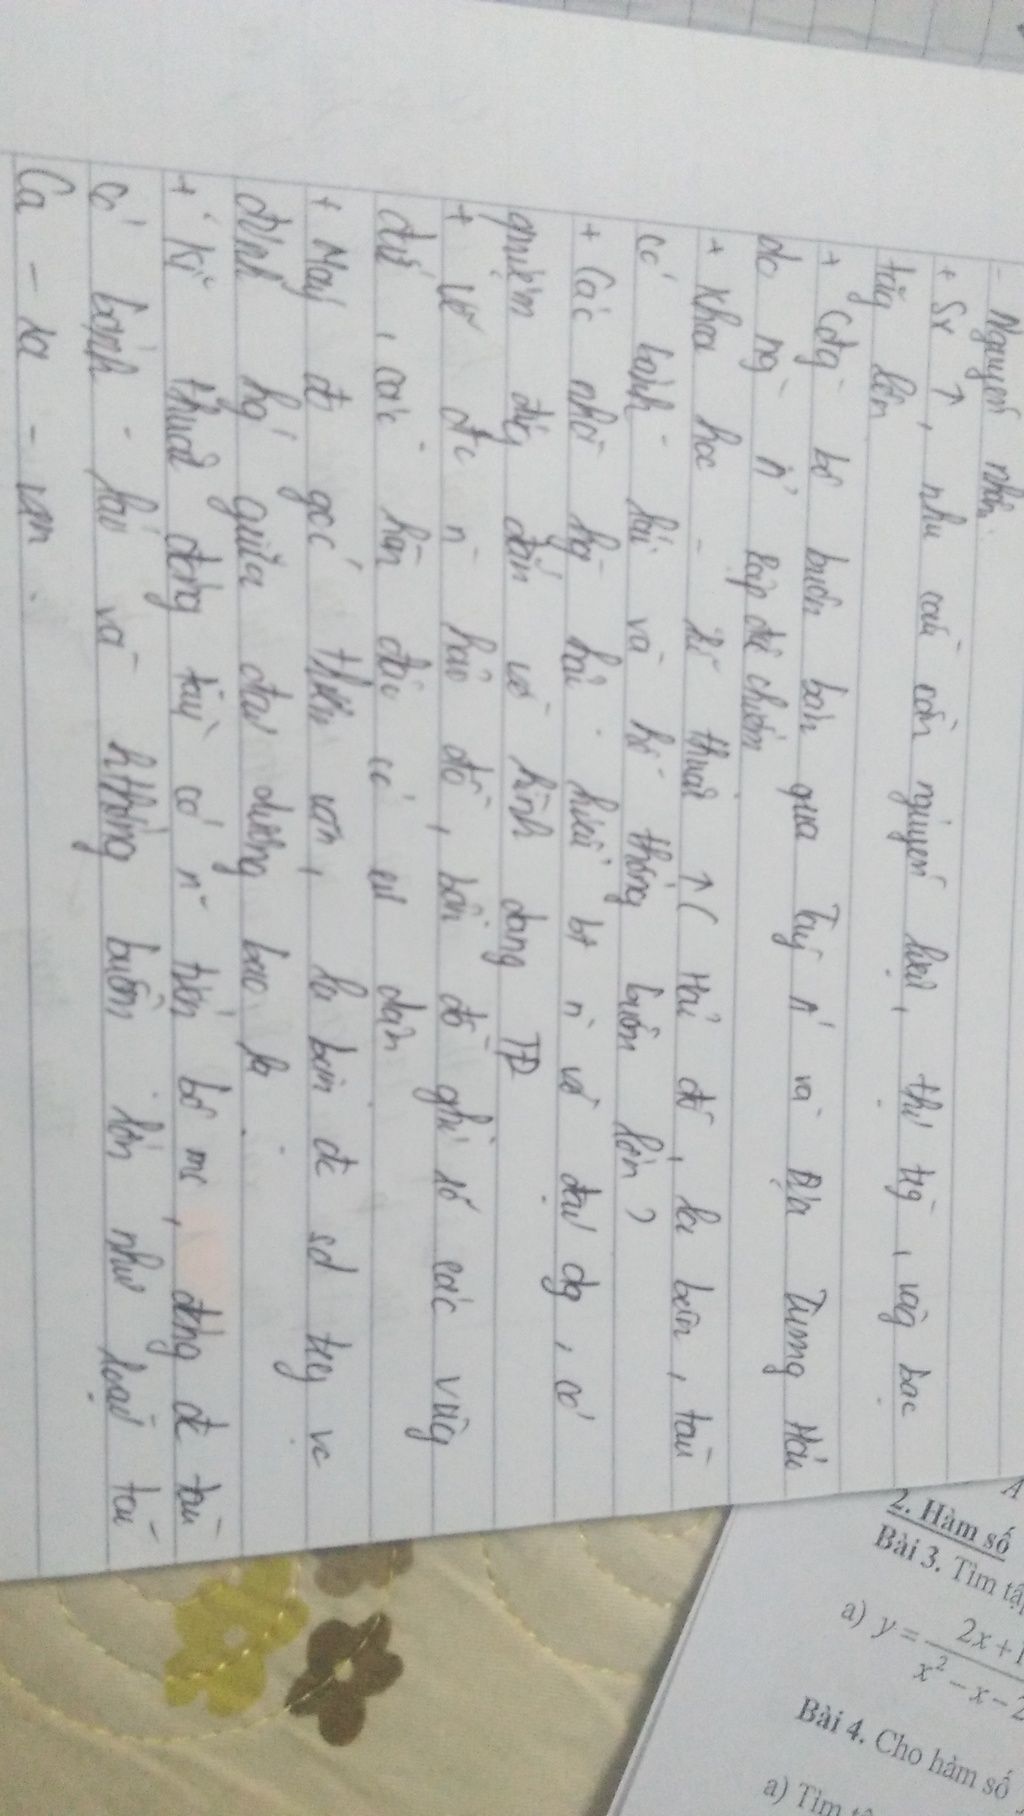 - Nguyên nhân
+ Sx ↑, nhu cầu cần nguyên liệu, thị tr, vàg bạc
tăg lên
+ Cđg bờ buôn bán qua Tây Á và Địa Trung Hải
do ng lập đc chiếm
+ Khoa học - kĩ thuật ↑ ( Hải đồ, la bàn, tàu
có bánh lái và hệ thống buồm lớn )
+ Các nhà hàg hải hiểu bt n về đại dg, có
quan điểm đúg đắn về hình dạng TĐ
+ Vẽ đc n hải đồ, bản đồ ghi rõ các vùg
đất, các hòn đảo có cư dân
+ Máy đo góc thiên văn, la bàn đc sd trg vc
định hg giữa đại dương bao la.
+ Kĩ thuật đóng tàu có n tiến bộ ms, đóng đc tàu
có bánh lái và hthống buồm lớn như loại tàu
Ca - ra - ven.
2. Hàm số
Bài 3. Tìm
a) y = 2x + 1
x² - x - 2
Bài 4. Cho hàm số
a) Tìm